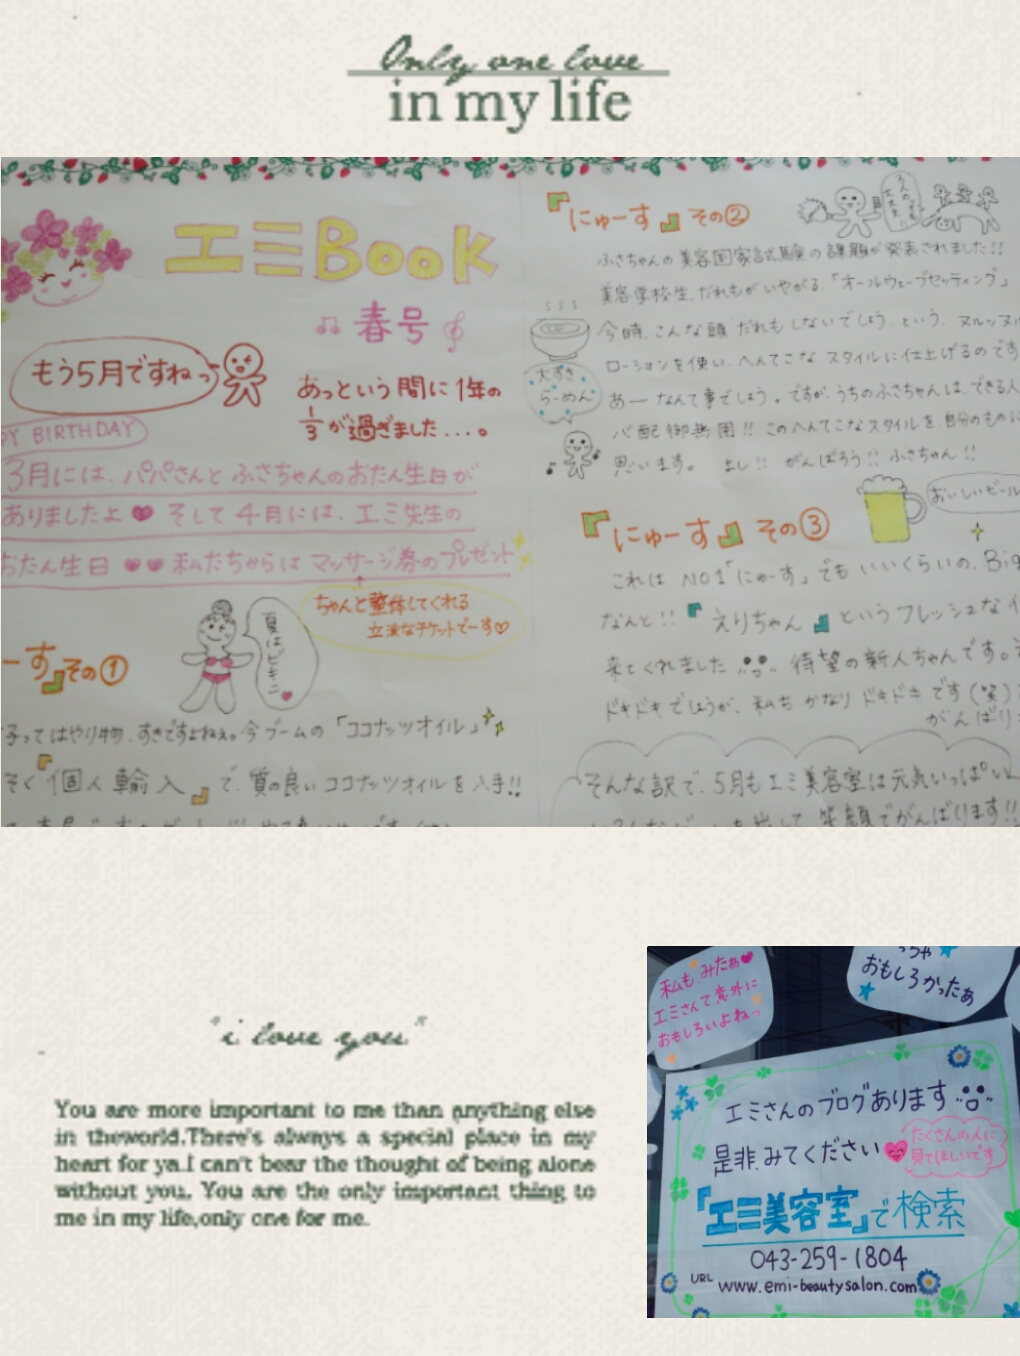 Only one love
in my life
エミBook
春号
もう5月ですねっ
あっという間に1年の
1/3が過ぎました....。
PY BIRTHDAY
3月には、パパさんとふさちゃんのおたん生日が
ありましたよ♥そして4月には、エミ先生の
おたん生日♥♥私たちからはマッサージ券のプレゼント
ちゃんと整体してくれる
立派なチケットでーす♡
夏はビキニ♥
ーす』その①
子ってはやり物、すきですよねぇ。今ブームの「ココナッツオイル」
そく『個人輸入』で、質の良いココナッツオイルを入手!!
『にゅーす』その②
ふさちゃんの美容国家試験の課題が発表されました!!
美容学校生、だれもがいやがる、「オールウェーブセッティング」
今時、こんな頭だれもしないでしょう、という、ヌルッヌル
ローションを使い、へんてこなスタイルに仕上げるのです
大すき
らーめん
あーなんて事でしょう。ですが、うちのふさちゃんは、できる人
心配御無用!!このへんてこなスタイルを、自分のものに
思います。 よし!!がんばろう!!ふさちゃん!!
おいしいビール
『にゅーす』その③
これはNO1「にゅーす」でもいいくらいの、Big
なんと!!『えりちゃん』というフレッシュな
来てくれました 待望の新人ちゃんです。
ドキドキでしょうが、私たちかなりドキドキです(笑)
がんばり
そんな訳で、5月もエミ美容室は元気いっぱい
笑顔でがんばります!!
私も、みたぁ♥
エミさんて意外に
おもしろいよねっ
っちゃ
おもしろかったぁ
エミさんのブログあります
是非、みてください
たくさんの人に
見てほしいです
『エミ美容室』で検索
043-259-1804
URL www.emi-beautysalon.com
"i love you"
You are more important to me than anything else
in theworld.There's always a special place in my
heart for ya.I can't bear the thought of being alone
without you. You are the only important thing to
me in my life,only one for me.